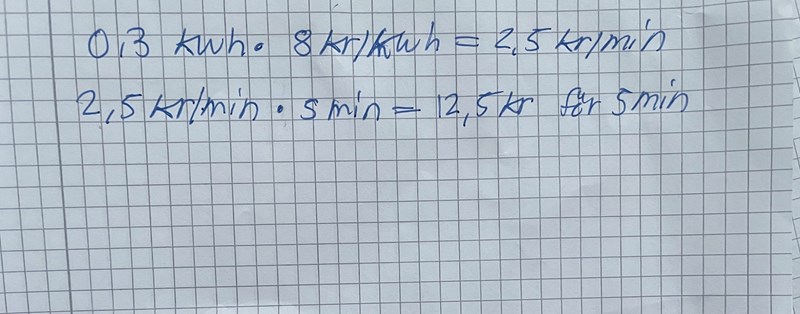 0,3 kwh. 8 kr/kwh = 2,5 kr/min
2,5 kr/min . 5 min = 12,5 kr för 5 min